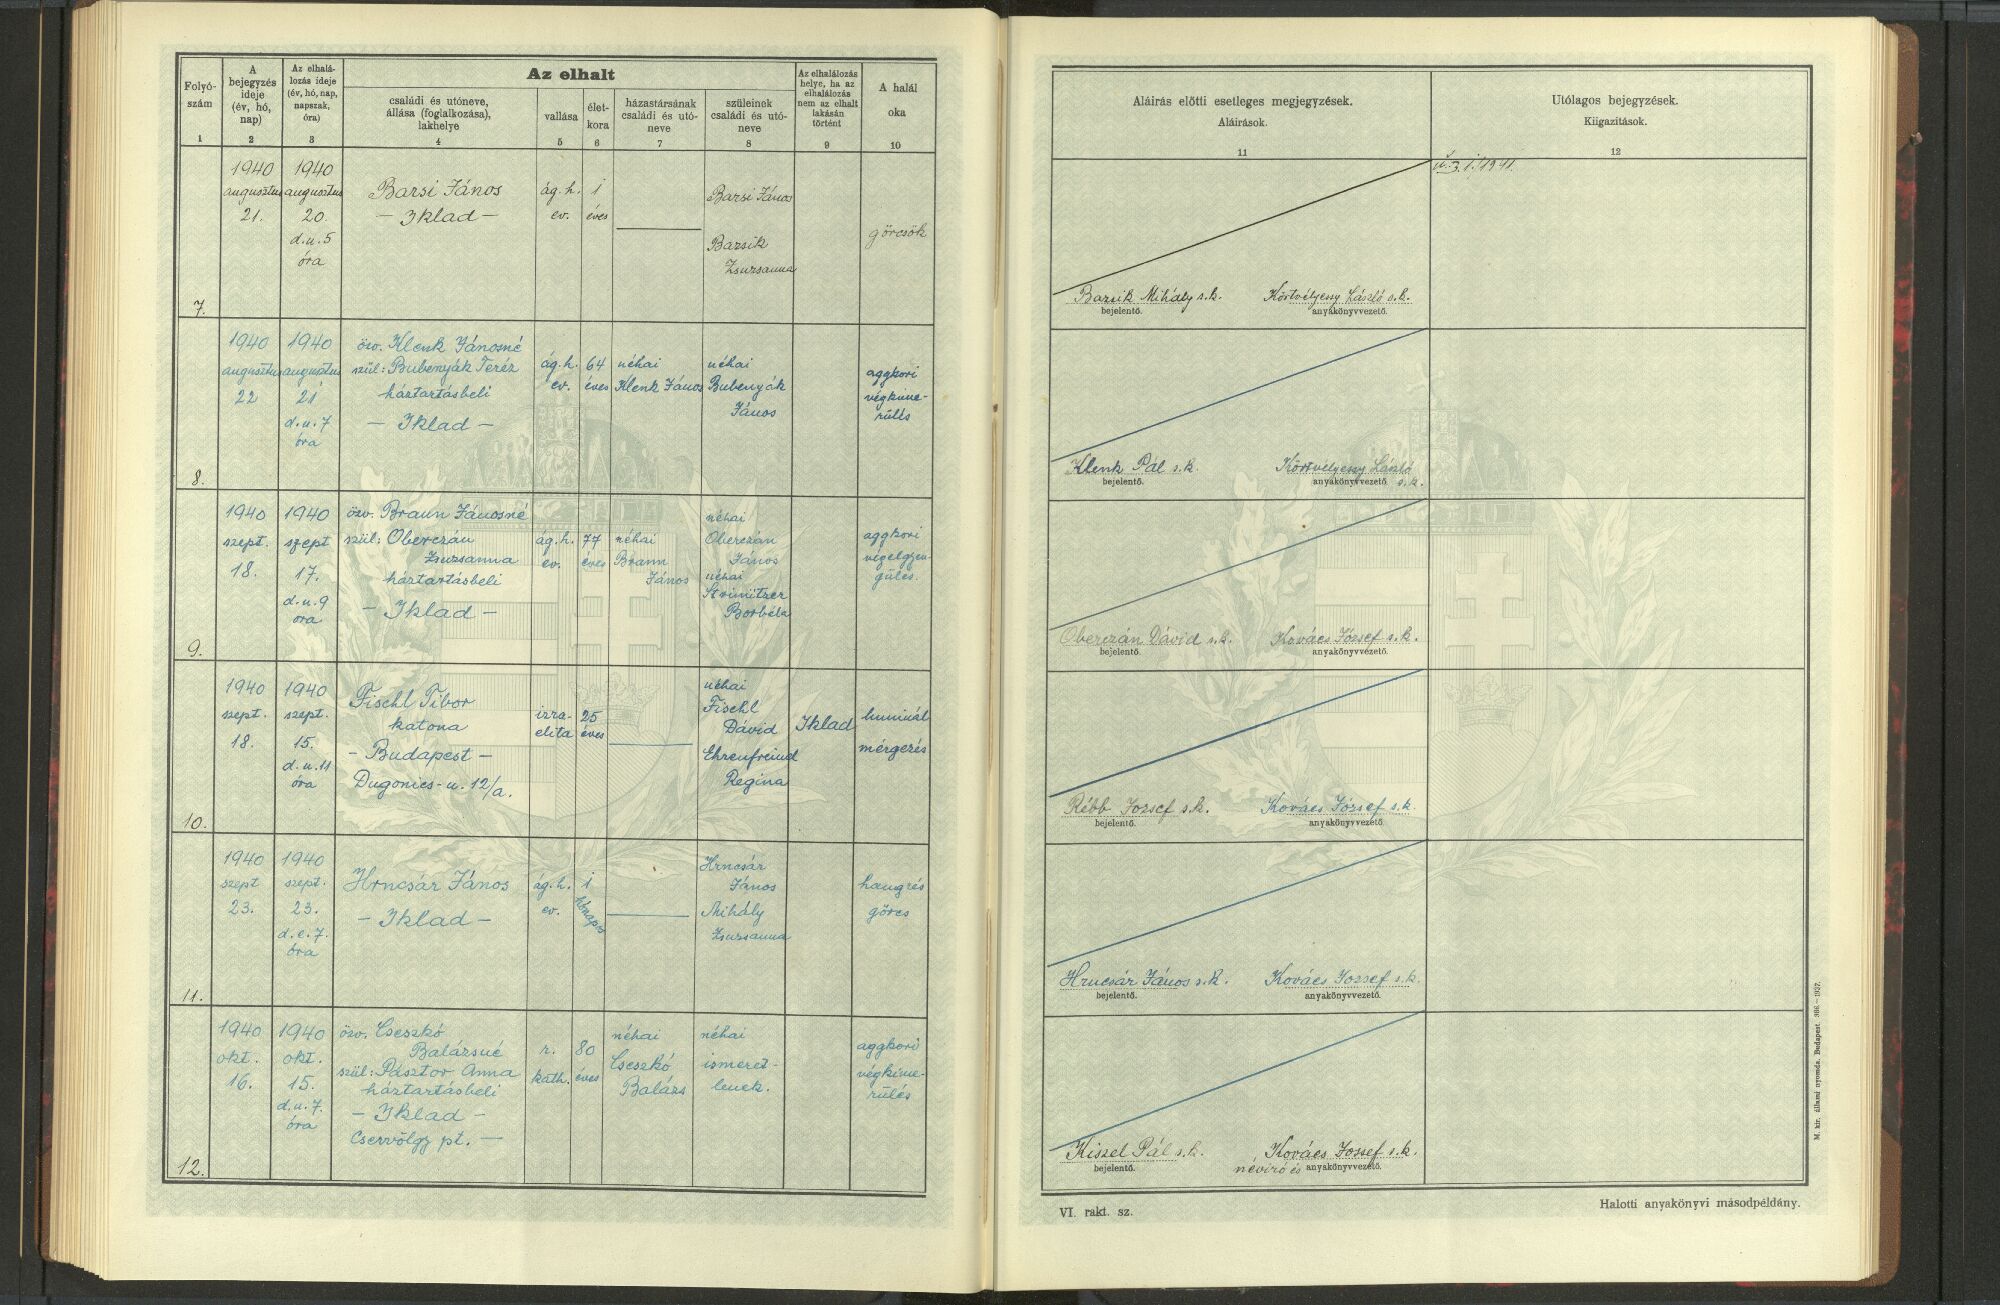 Folyó-
szám
1
A
bejegyzés
ideje
(év, hó,
nap)
2
Az elhalá-
lozás ideje
(év, hó, nap,
napszak,
óra)
3
Az elhalt
családi és utóneve,
állása (foglalkozása),
lakhelye
4
vallása
5
élet-
kora
6
házastársának
családi és utó-
neve
7
szüleinek
családi és utó-
neve
8
Az elhalálozás
helye, ha az
elhalálozás
nem az elhalt
lakásán
történt
9
A halál
oka
10
Aláírás előtti esetleges megjegyzések.
Aláírások.
11
Utólagos bejegyzések.
Kiigazítások.
12
7.
1940
augusztus
21.
1940
augusztus
20.
d.u. 5
óra
Barsi János
- Iklad -
ág. h.
ev.
1
éves
Barsi János
Barsik
Zsuzsanna
görcsök
Barsik Mihály s.k.
bejelentő.
Körtvélyessy László s.k.
anyakönyvvezető.
8.
1940
augusztus
22
1940
augusztus
21
d.u. 7
óra
özv. Klenk Jánosné
szül: Bubenyák Teréz
háztartásbeli
- Iklad -
ág. h.
ev.
64
éves
néhai
Klenk János
néhai
Bubenyák
János
aggkori
végkime-
rülés
Klenk Pál s.k.
bejelentő.
Körtvélyessy László
anyakönyvvezető. s.k.
9.
1940
szept.
18.
1940
szept
17.
d.u. 9
óra
özv. Braun Jánosné
szül: Oberczán
Zsuzsanna
háztartásbeli
- Iklad -
ág. h.
ev.
77
éves
néhai
Braun
János
néhai
Oberczán
János
néhai
Strinitzer
Borbéla
aggkori
végelgyen-
gülés.
Oberczán Dávid s.k.
bejelentő.
Kovács József s.k.
anyakönyvvezető.
10.
1940
szept.
18.
1940
szept.
15.
d.u. 11
óra
Fischl Tibor
katona
- Budapest -
Dugonics-u. 12/a.
izra-
elita
25
éves
néhai
Fischl
Dávid
Ehrenfreind
Regina
Iklad
luminál
mérgezés
Rébb József s.k.
bejelentő.
Kovács József s.k.
anyakönyvvezető
11.
1940
szept
23.
1940
szept.
23.
d.e. 7.
óra
Hrncsár János
- Iklad -
ág. h.
ev.
1
hónapos
Hrncsár
János
Mihály
Zsuzsanna
hangrés
görcs
Hrncsár János s.k.
bejelentő.
Kovács József s.k.
anyakönyvvezető.
12.
1940
okt.
16.
1940
okt.
15.
d.u. 7.
óra
özv. Cseszkó
Balázsné
szül: Pásztor Anna
háztartásbeli
- Iklad -
Cservölgy pt. -
r.
kath.
80
éves
néhai
Cseszkó
Balázs
néhai
ismeret-
lenek.
aggkori
végkime-
rülés
Kiszel Pál s.k.
bejelentő.
Kovács József s.k.
névíró és anyakönyvvezető.
VI. rakt. sz.
Halotti anyakönyvi másodpéldány.
M. kir. állami nyomda. Budapest. 986.—1937.